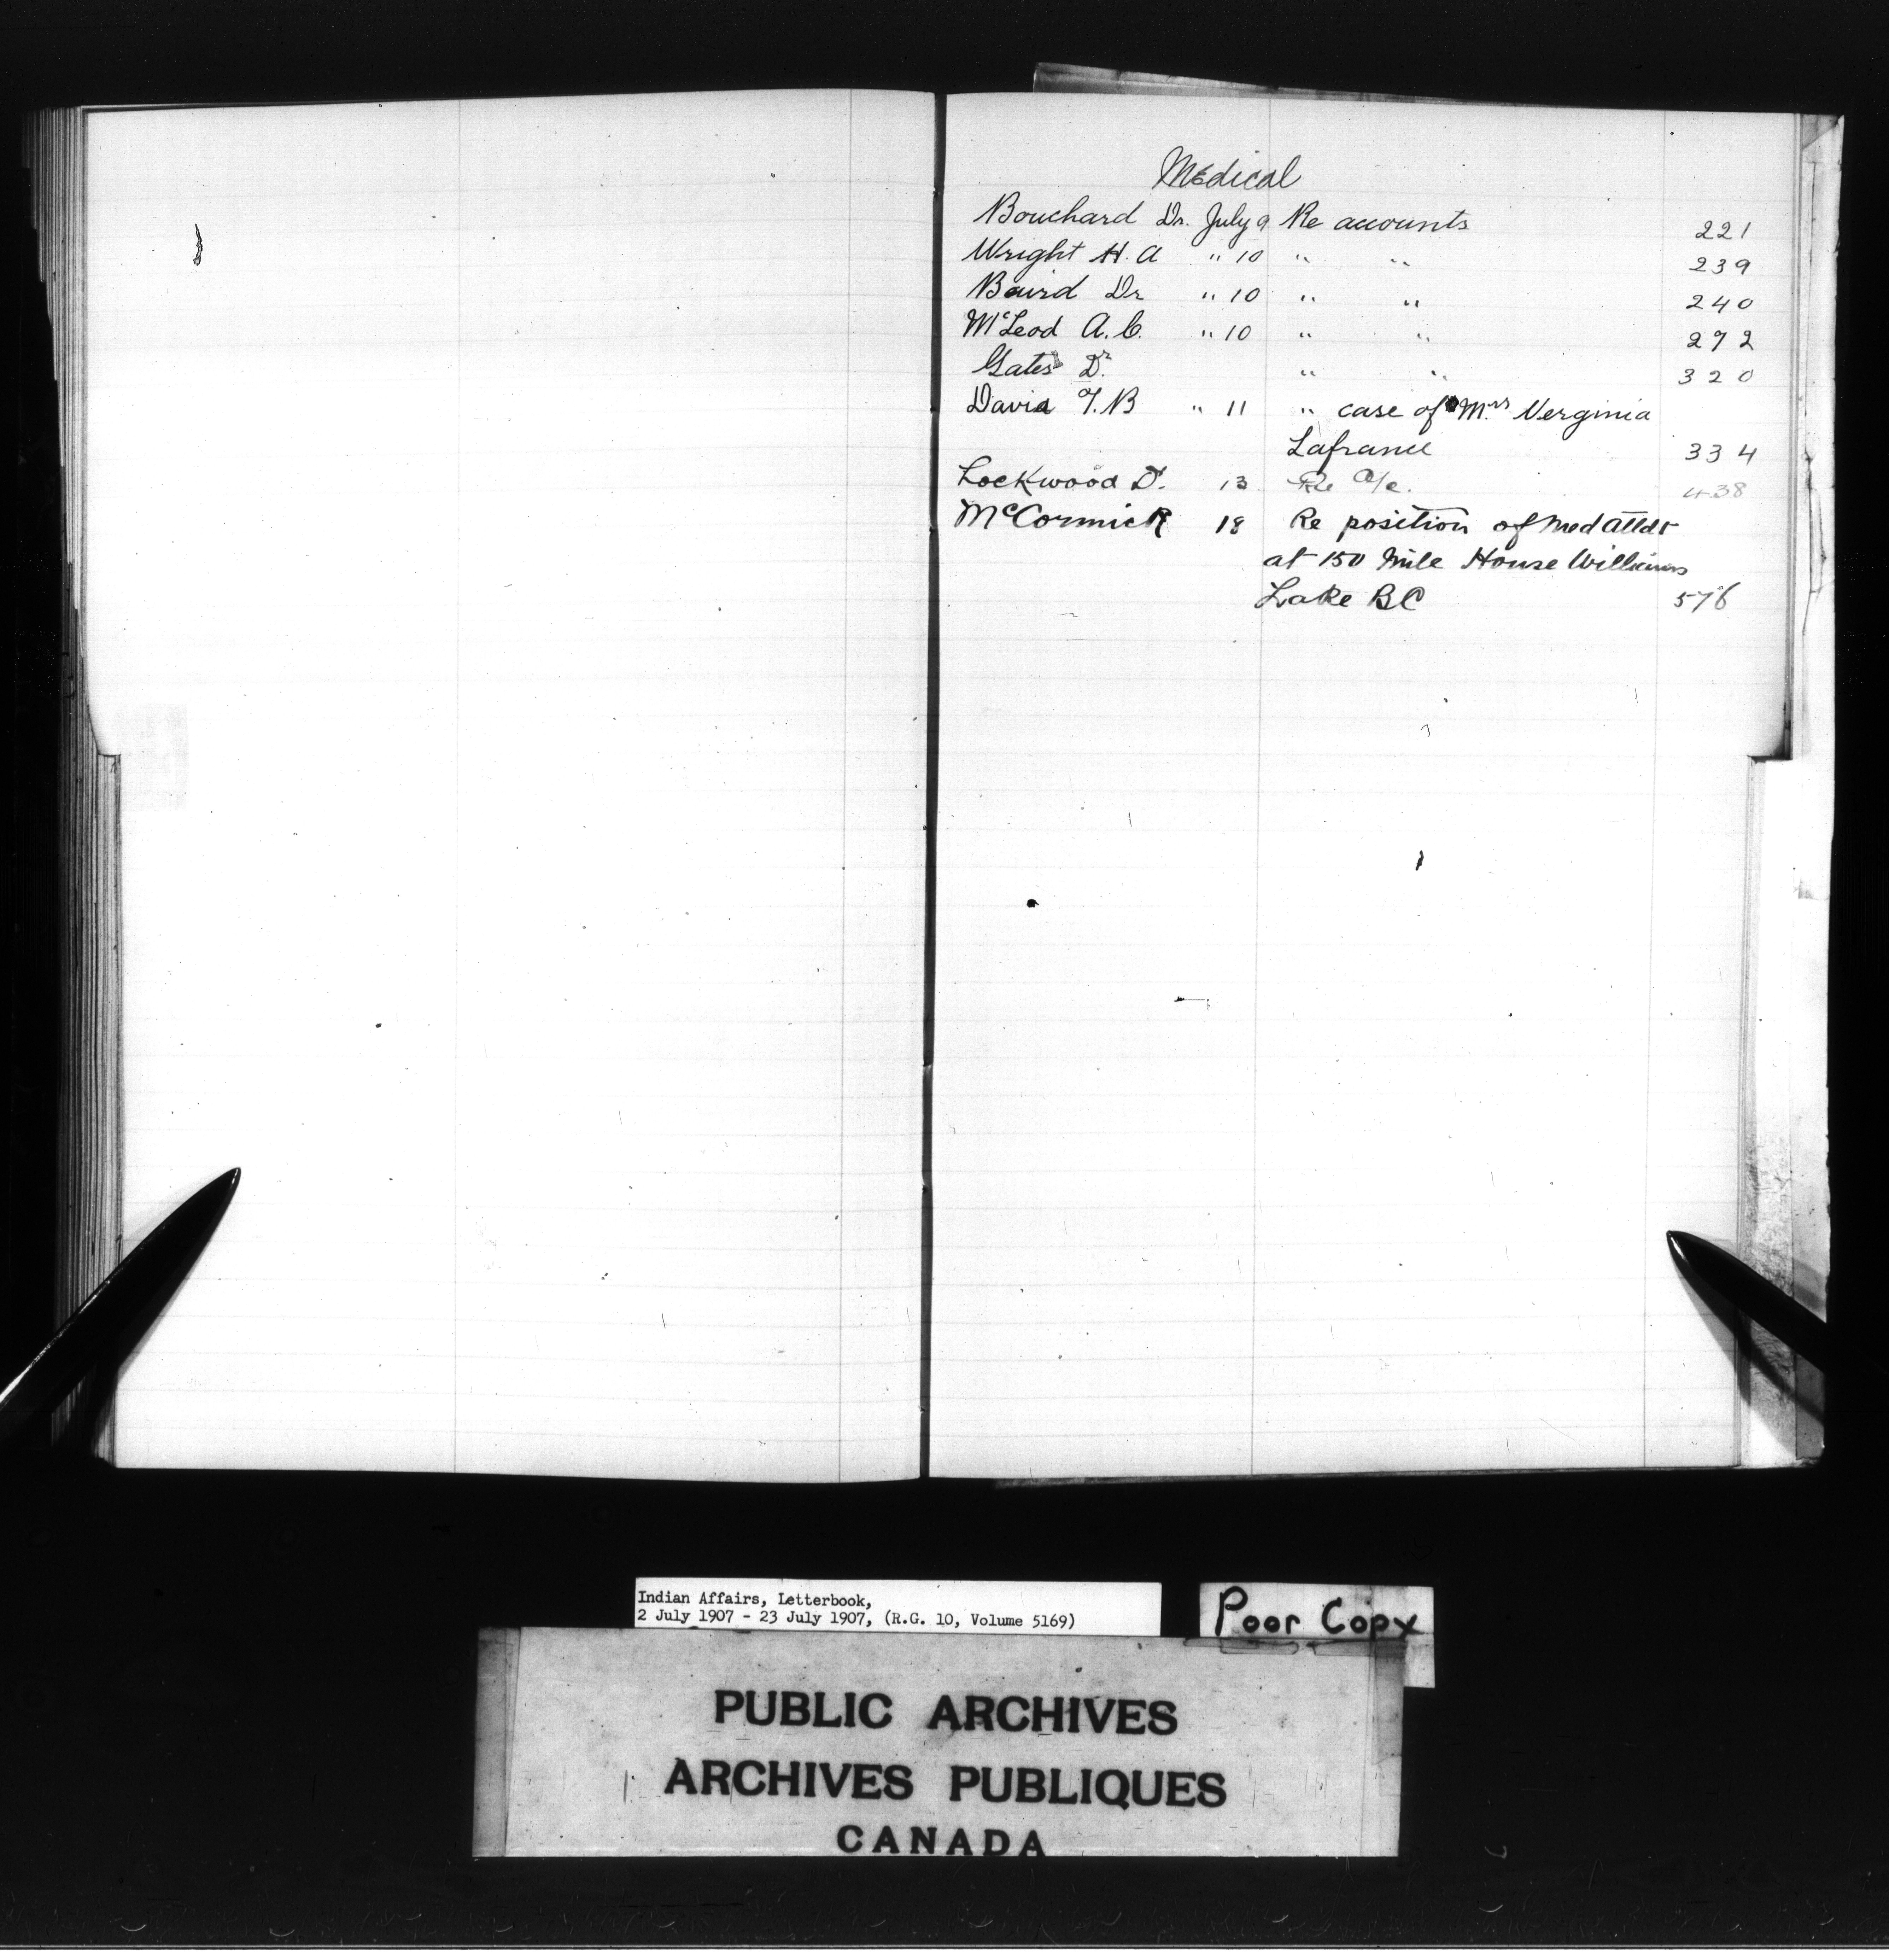 Medical
Bouchard Dr. July 9 Re accounts 221
Wright H. A " 10 " " 239
Baird Dr " 10 " " 240
McLeod A. C. " 10 " " 272
Gates Dr. " " 320
David T. B " 11 " case of Mrs Verginia
Lafrance 334
Lockwood D. 13 Re a/c. 438
McCormick 18 Re position of Med Attdt
at 150 Mile House Williams
Lake BC 576
Indian Affairs, Letterbook,
2 July 1907 - 23 July 1907, (R.G. 10, Volume 5169)
Poor Copy
PUBLIC ARCHIVES
ARCHIVES PUBLIQUES
CANADA